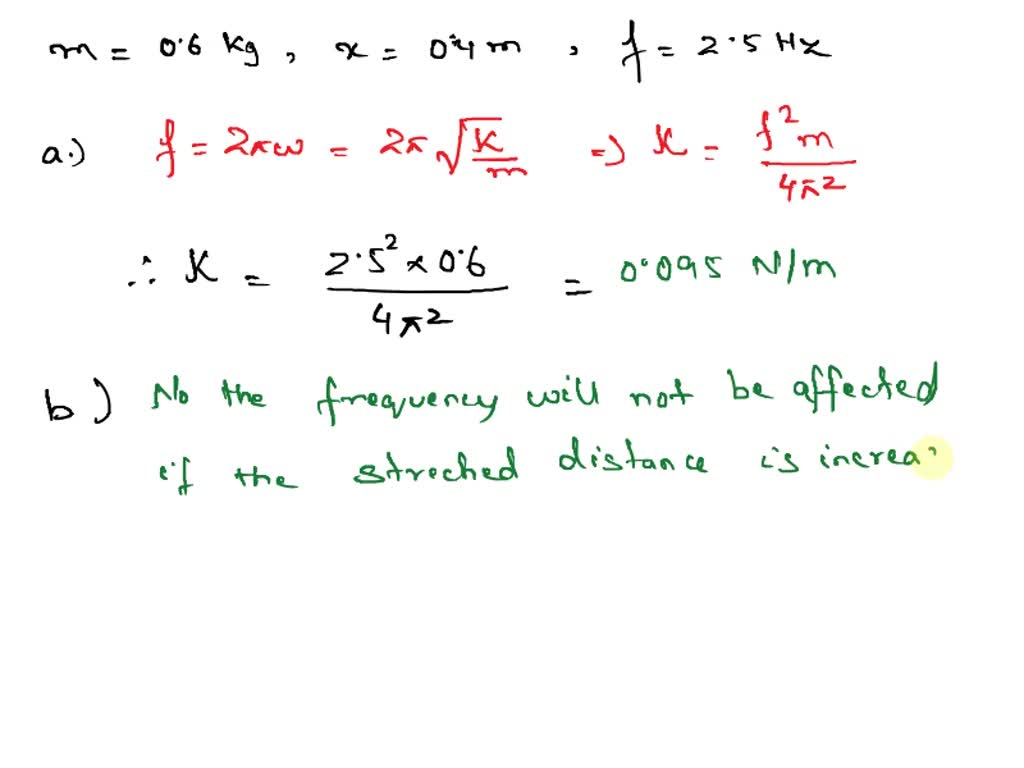 m = 0.6 kg, x = 0.4 m, f = 2.5 Hz
a.) f = 2πω = 2π √(K/m) ⇒ K = f²m / 4π²
∴ K = 2.5² × 0.6 / 4π² = 0.095 N/m
b) No the frequency will not be affected
if the streched distance is increa